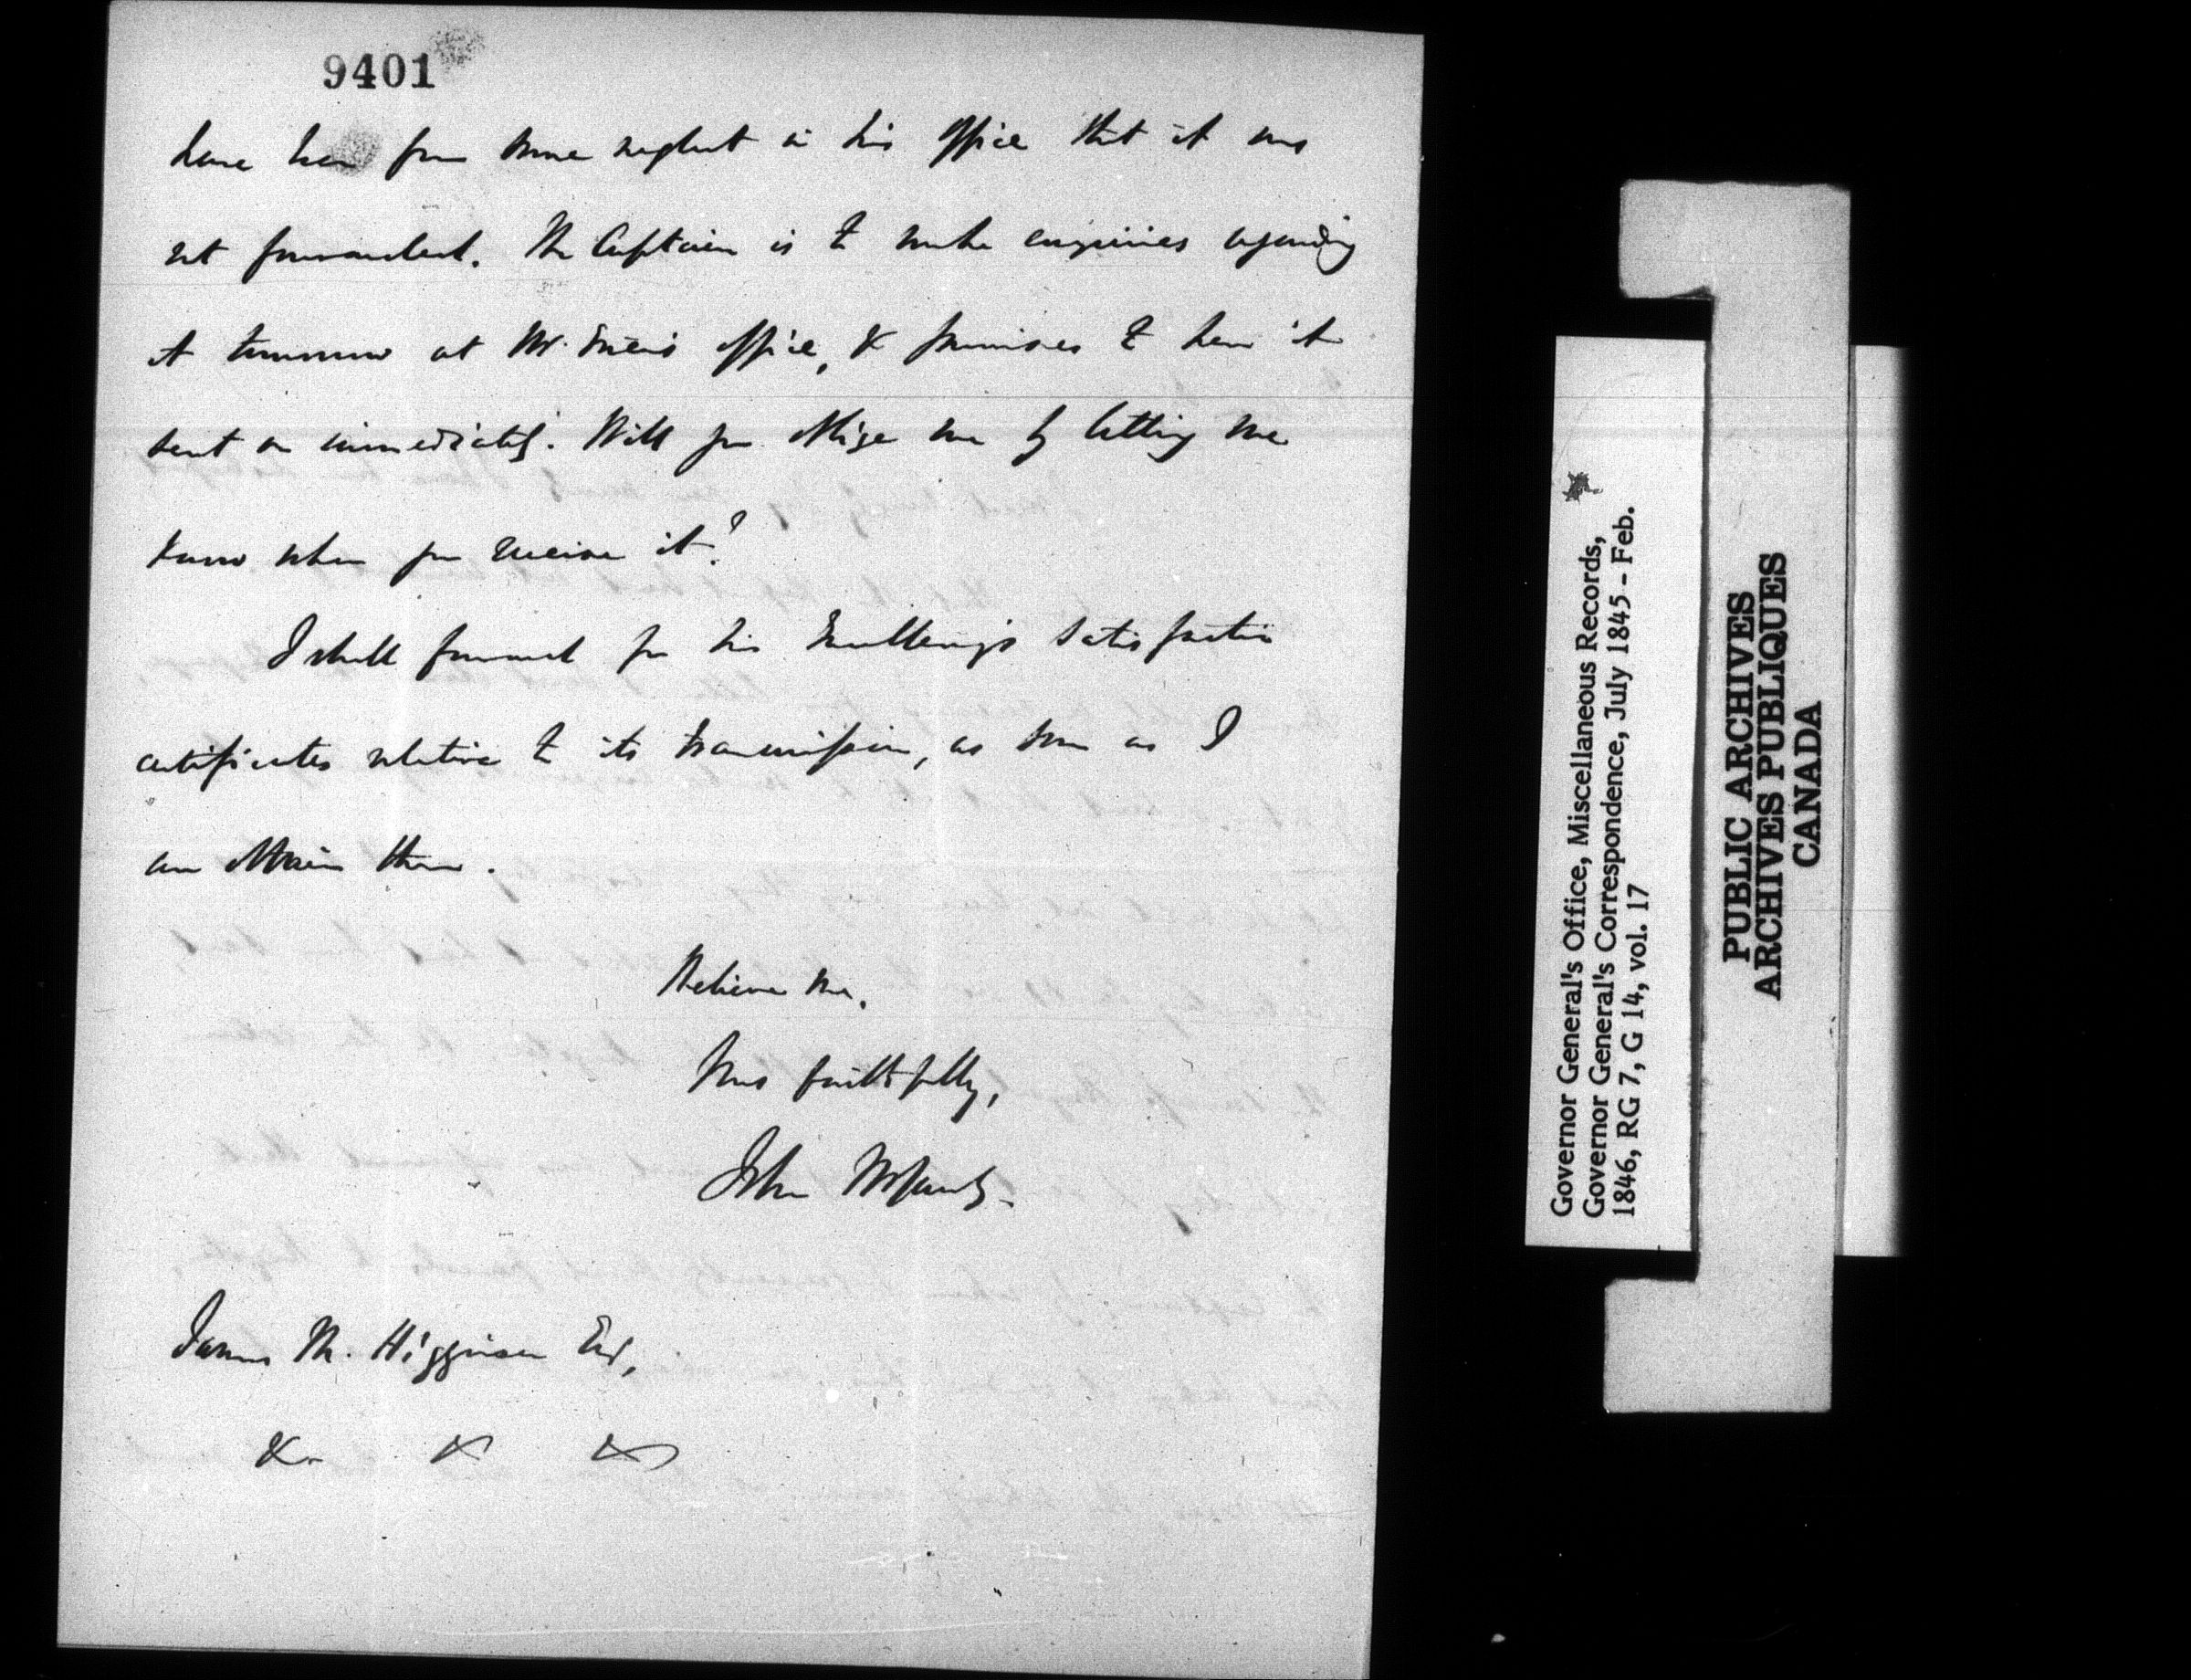 9401
have been from some neglect in his office that it was
not forwarded. The Captain is to make enquiries regarding
it tomorrow at Mr. office, & promises to have it
sent on immediately. Will you oblige me by letting me
know when you receive it?
I shall forward for his Excellency's satisfaction
certificates relative to its transmission, as soon as I
can obtain them.
Believe me,
Yours faithfully,
John
James M. Higginson Esq,
&c &c &c
Governor General's Office, Miscellaneous Records,
Governor General's Correspondence, July 1845 - Feb.
1846, RG 7, G 14, vol. 17
PUBLIC ARCHIVES
ARCHIVES PUBLIQUES
CANADA